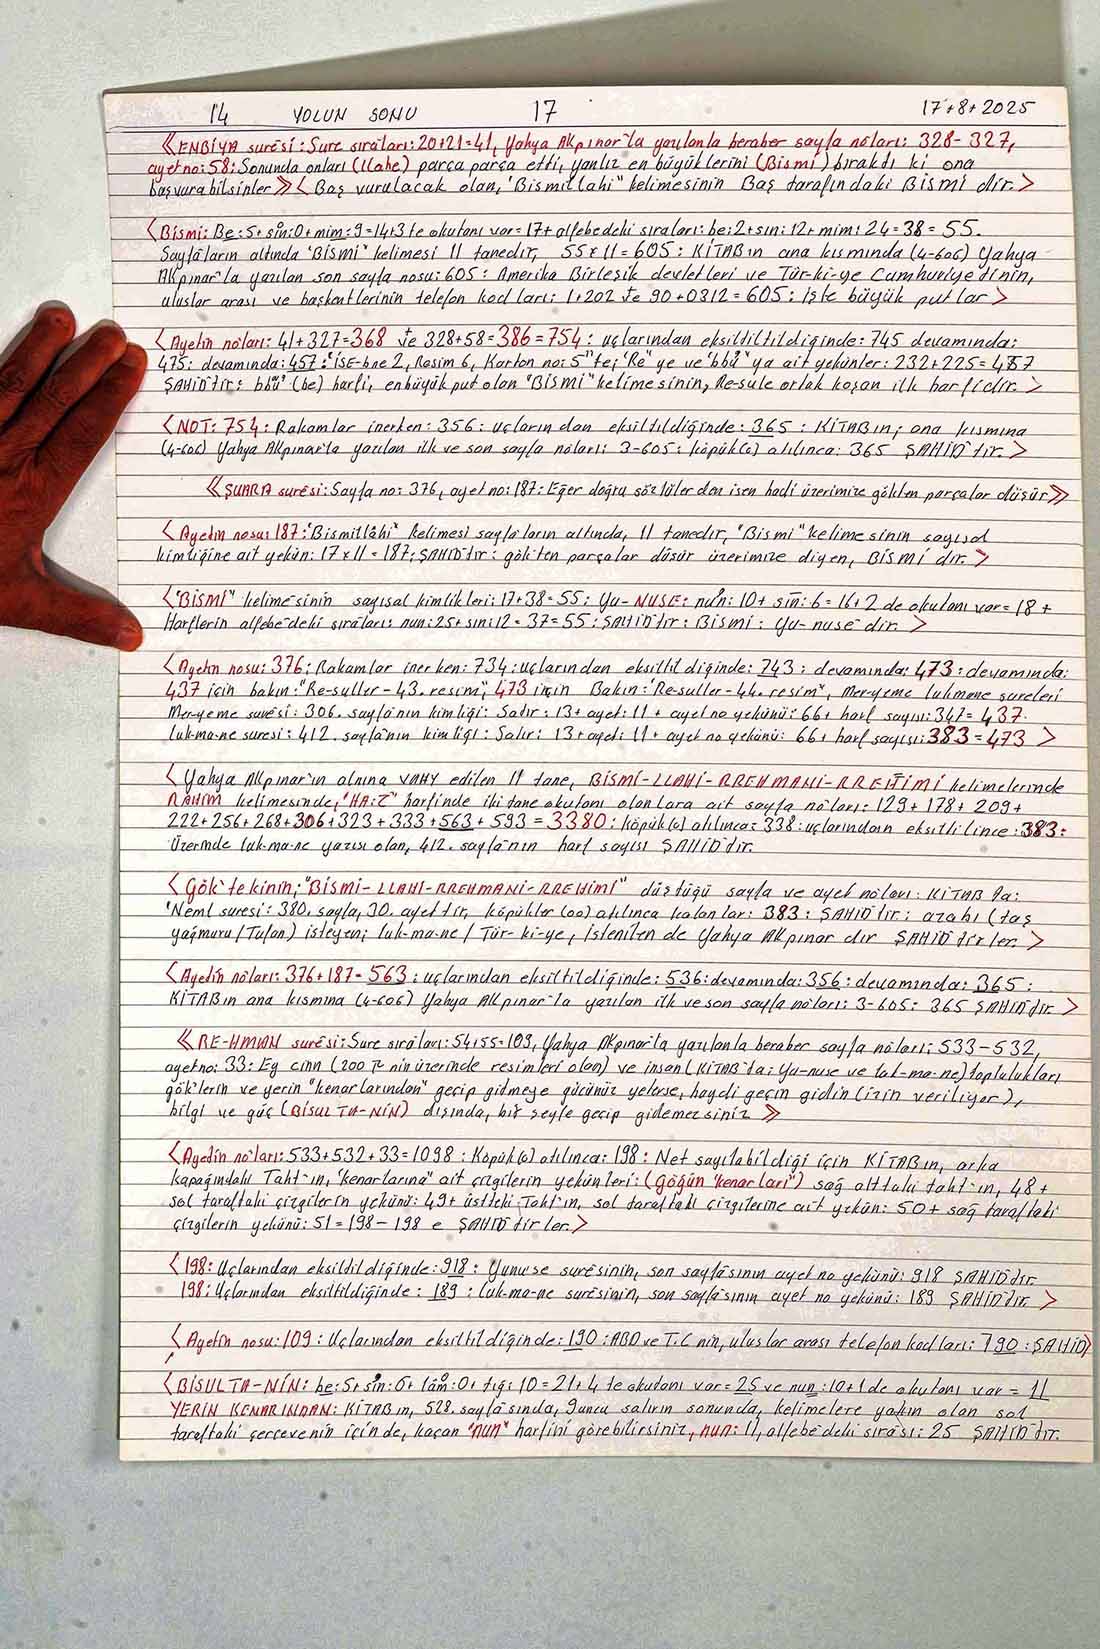 14 YOLUN SONU 17 17+8+2025
《ENBİYA suresi: Sure sıraları: 20+21=41, Yahya Akpınar'la yazılanla beraber sayfa noları: 328-327,
ayet no: 58: Sonunda onları (İlahe) parça parça etti, yanlız en büyüklerini (Bismi) bıraktı ki ona
başvurabilsinler》〈Baş vurulacak olan, "Bismillahi" kelimesinin Baş tarafındaki Bismi dir.〉
〈Bismi: Be:5+sin:0+mim:9=14+3 te okutanı var=17+alfebedeki sıraları: be:2+sın:12+mim:24=38=55.
Sayfaların altında "Bismi" kelimesi 11 tanedir, 55x11=605: KİTABın ana kısmında (4-606) Yahya
Akpınar'la yazılan son sayfa nosu: 605: Amerika Birleşik devletleri ve Tür-ki-ye Cumhuriyedinin,
uluslar arası ve başkentlerinin telefon kodları: 1+202 ve 90+0312=605: İşte büyük putlar〉
〈Ayetin noları: 41+327=368 ve 328+58=386=754: uçlarından eksiltiltildiğinde: 745 devamında:
475: devamında: 457: "İSE-bne 2, Resim 6, Karton no: 5" te; "Re" ye ve "bbü" ya ait yekünler: 232+225=457
ŞAHİDtir: bbü (be) harfi, enbüyük put olan "Bismi" kelimesinin, Re-sule ortak koşan ilk harfidir.〉
〈NOT: 754: Rakamlar inerken: 356: uçlarından eksiltildiğinde: 365: KİTABın; ana kısmına
(4-606) Yahya Akpınar'la yazılan ilk ve son sayfa noları: 3-605: köpük(o) atılınca: 365 ŞAHİDtir.〉
《ŞUARA suresi: Sayfa no: 376, ayet no: 187: Eğer doğru sözlülerden isen hadi üzerimize gökten parçalar düşür》
〈Ayetin nosu: 187: "Bismillâhi" kelimesi sayfaların altında, 11 tanedir, "Bismi" kelimesinin sayısal
kimliğine ait yekün: 17x11=187: ŞAHİDtir: gökten parçalar düşür üzerimize diyen, BİSMİ dir.〉
〈"BİSMİ" kelimesinin sayısal kimlikleri: 17+38=55: Yu-NUSE: nun: 10+ sin: 6=16+2 de okutanı var=18+
Harflerin alfebedeki sıraları: nun:25+sin:12=37=55: ŞAHİDtir: Bismi: Yu-nusedir.〉
〈Ayetin nosu: 376: Rakamlar inerken: 734: uçlarından eksiltildiğinde: 743: devamında: 473: devamında:
437 için bakın: "Re-suller-43. resim"; 473 için Bakın: "Re-suller-44. resim", Mer-yeme lukmane sureleri
Mer-yeme suresi: 306. sayfanın kimliği: Satır: 13+ ayet: 11+ ayet no yekünü: 66+ harf sayısı: 347=437.
luk-ma-ne suresi: 412. sayfanın kimliği: Satır: 13+ayet: 11+ ayet no yekünü: 66+ harf sayısı: 383=473〉
〈Yahya Akpınar'ın alnına VAHY edilen 11 tane, BİSMİ-LLAHİ-RREHMANİ-RREHİMİ kelimelerinde
RAHİM kelimesinde, "HA:Z" harfinde iki tane okutanı olanlara ait sayfa noları: 129+178+209+
222+256+268+306+323+333+563+593=3380: köpük(o) atılınca: 338: uçlarından eksiltilince: 383:
Üzerinde luk-ma-ne yazısı olan, 412. sayfanın harf sayısı ŞAHİDtir.
〈Gök'tekinin; "BİSMİ-LLAHİ-RREHMANİ-RREHİMİ" düştüğü sayfa ve ayet noları: KİTABta:
"Neml suresi: 380. sayfa, 30. ayettir, köpükler (oo) atılınca kalanlar: 383: ŞAHİDtir: azabı (taş
yağmuru/Tufan) isteyen; luk-ma-ne/Tür-ki-ye, İstenilen de Yahya Akpınar dır ŞAHİDtirler.〉
〈Ayetin noları: 376+187=563: uçlarından eksiltildiğinde: 536: devamında: 356: devamında: 365:
KİTABın ana kısmına (4-606) Yahya Akpınar'la yazılan ilk ve son sayfa noları: 3-605: 365 ŞAHİDtir.〉
《RE-HMAN suresi: Sure sıraları: 54+55=109, Yahya Akpınar'la yazılanla beraber sayfa noları: 533-532,
ayet no: 33: Ey cinn (200 ₺ nin üzerinde resimleri olan) ve insan (KİTABta: Yu-nuse ve luk-ma-ne) toplulukları
gök'lerin ve yerin "kenarlarından" geçip gitmeye gücünüz yeterse, haydi geçin gidin (izin veriliyor),
bilgi ve güç (BİSULTA-NİN) dışında, bir şeyle geçip gidemezsiniz》
〈Ayedin noları: 533+532+33=1098: Köpük(o) atılınca: 198: Net sayılabildiği için KİTABın, arka
kapağındaki Taht'ın, "kenarlarına" ait çizgilerin yekünleri: (Göğün "kenarları") sağ alttaki taht'ın, 48+
sol taraftaki çizgilerin yekünü: 49+ üstteki Taht'ın, sol taraftaki çizgilerine ait yekün: 50+ sağ taraftaki
çizgilerin yekünü: 51=198-198 e ŞAHİDtirler.〉
〈198: Uçlarından eksiltildiğinde: 918: Yunuse suresinin, son sayfasının ayet no yekünü: 918 ŞAHİDtir.
198: Uçlarından eksiltildiğinde: 189: luk-ma-ne suresinin, son sayfasının ayet no yekünü: 189 ŞAHİDtir.〉
〈Ayetin nosu: 109: Uçlarından eksiltildiğinde: 190: ABD ve T.C nin, uluslar arası telefon kodları: 190: ŞAHİD〉
〈BİSULTA-NİN: be:5+sin:6+lâm:0+tığ:10=21+4 te okutanı var=25 ve nun:10+1 de okutanı var=11
YERİN KENARINDAN: KİTABın, 528. sayfasında, 9uncu satırın sonunda, kelimelere yakın olan sol
taraftaki çerçevenin içinde, kaçan "nun" harfini görebilirsiniz, nun: 11, alfebedeki sırası: 25 ŞAHİDtir.